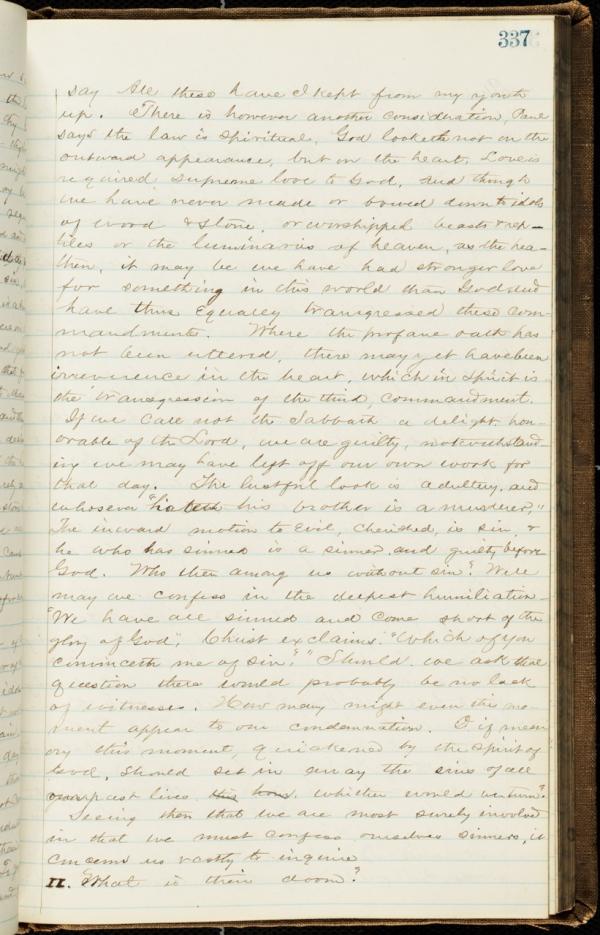 337
say All these have I kept from my youth
up. There is however another consideration, Paul
says the law is spiritual, God looketh not on the
outward appearance, but on the heart, Love is
required supreme love to God, and though
we have never made or bowed down to idols
of wood & stone, or worshipped beasts & rep-
tiles or the luminaries of heaven, as the hea-
then, it may be we have had stronger love
for something in this world than God and
have thus equally transgressed these com-
mandments. Where the profane oath has
not been uttered, there may yet have been
irreverence in the heart, which in Spirit is
the transgression of the third, commandment.
If we call not the Sabbath a delight, hon-
orable of the Lord, we are guilty, notwithstand-
ing we may have left off our own work for
that day. The lustful look is adultery, and
whosoever "hateth his brother is a murderer,"
The inward motion to Evil, cherished, is sin &
he who has sinned is a sinner and guilty before
God. Who then among us without sin? Well
may we confess in the deepest humiliation -
"We have all sinned and come short of the
glory of God", Christ exclaims "Which of you
convinceth me of sin?" Should we ask that
question there would probably be no lack
of witnesses. How many might even this mo-
ment appear to our condemnation. O if mem-
ory this moment, quickened by the Spirit of
God, should set in array the sins of all
our past lives whither would we turn?
Seeing then that we are most surely involved
in that we must confess ourselves sinners, it
concerns us vastly to inquire
II. What is their doom?